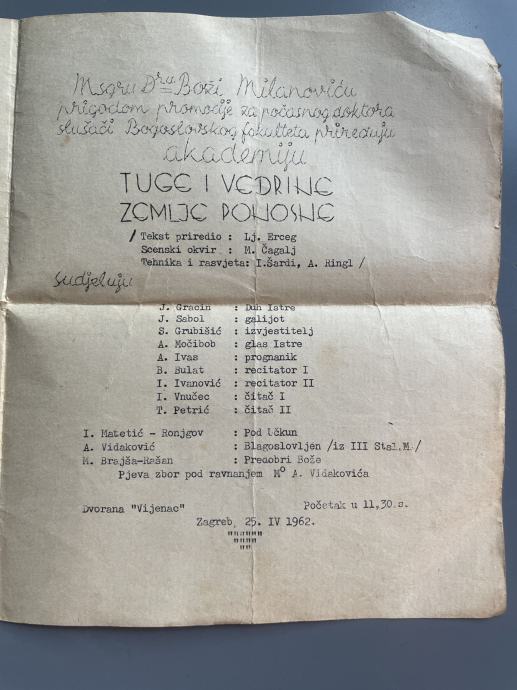 Msgru Dra Boži Milanoviću
prigodom promocije za počasnog doktora
slušači Bogoslovskog fakulteta priređuju
akademiju
TUGE I VEDRINE
ZEMLJE PONOSNE
/Tekst priredio : Lj. Erceg
Scenski okvir : M. Čagalj
Tehnika i rasvjeta: I.Šardi, A. Ringl /
sudjeluju
J. Gracin : Duh Istre
J. Sabol : galijot
S. Grubišić : izvjestitelj
A. Močibob : glas Istre
A. Ivas : prognanik
B. Bulat : recitator I
I. Ivanović : recitator II
I. Vnučec : čitač I
T. Petrić : čitač II
I. Matetić - Ronjgov : Pod Učkun
A. Vidaković : Blagoslovljen /iz III Stal.M./
M. Brajša-Rašan : Predobri Bože
Pjeva zbor pod ravnanjem Mo A. Vidakovića
Dvorana "Vijenac" Početak u 11,30.s.
Zagreb, 25. IV 1962.
"""""""
"""""
""